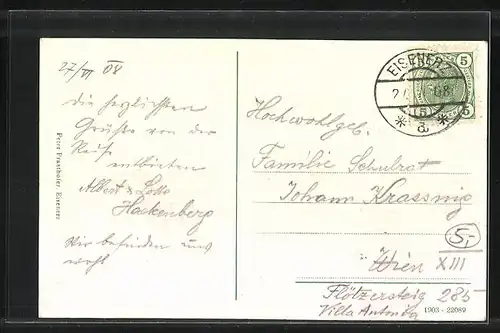 27/VI 08
die herzlichsten
Grüße von der
Reise
entbieten
Albert & Lotte
Hackenberg
Wir befinden uns
wohl
Peter Prasthofer, Eisenerz
EISENERZ
08
* a *
5 5
5 5
Hochwohlgeb.
Familie Schulrat
Johann Krassnig
5,-
Wien XIII
Flötzersteig 285
Villa Antonika
1903 - 22089